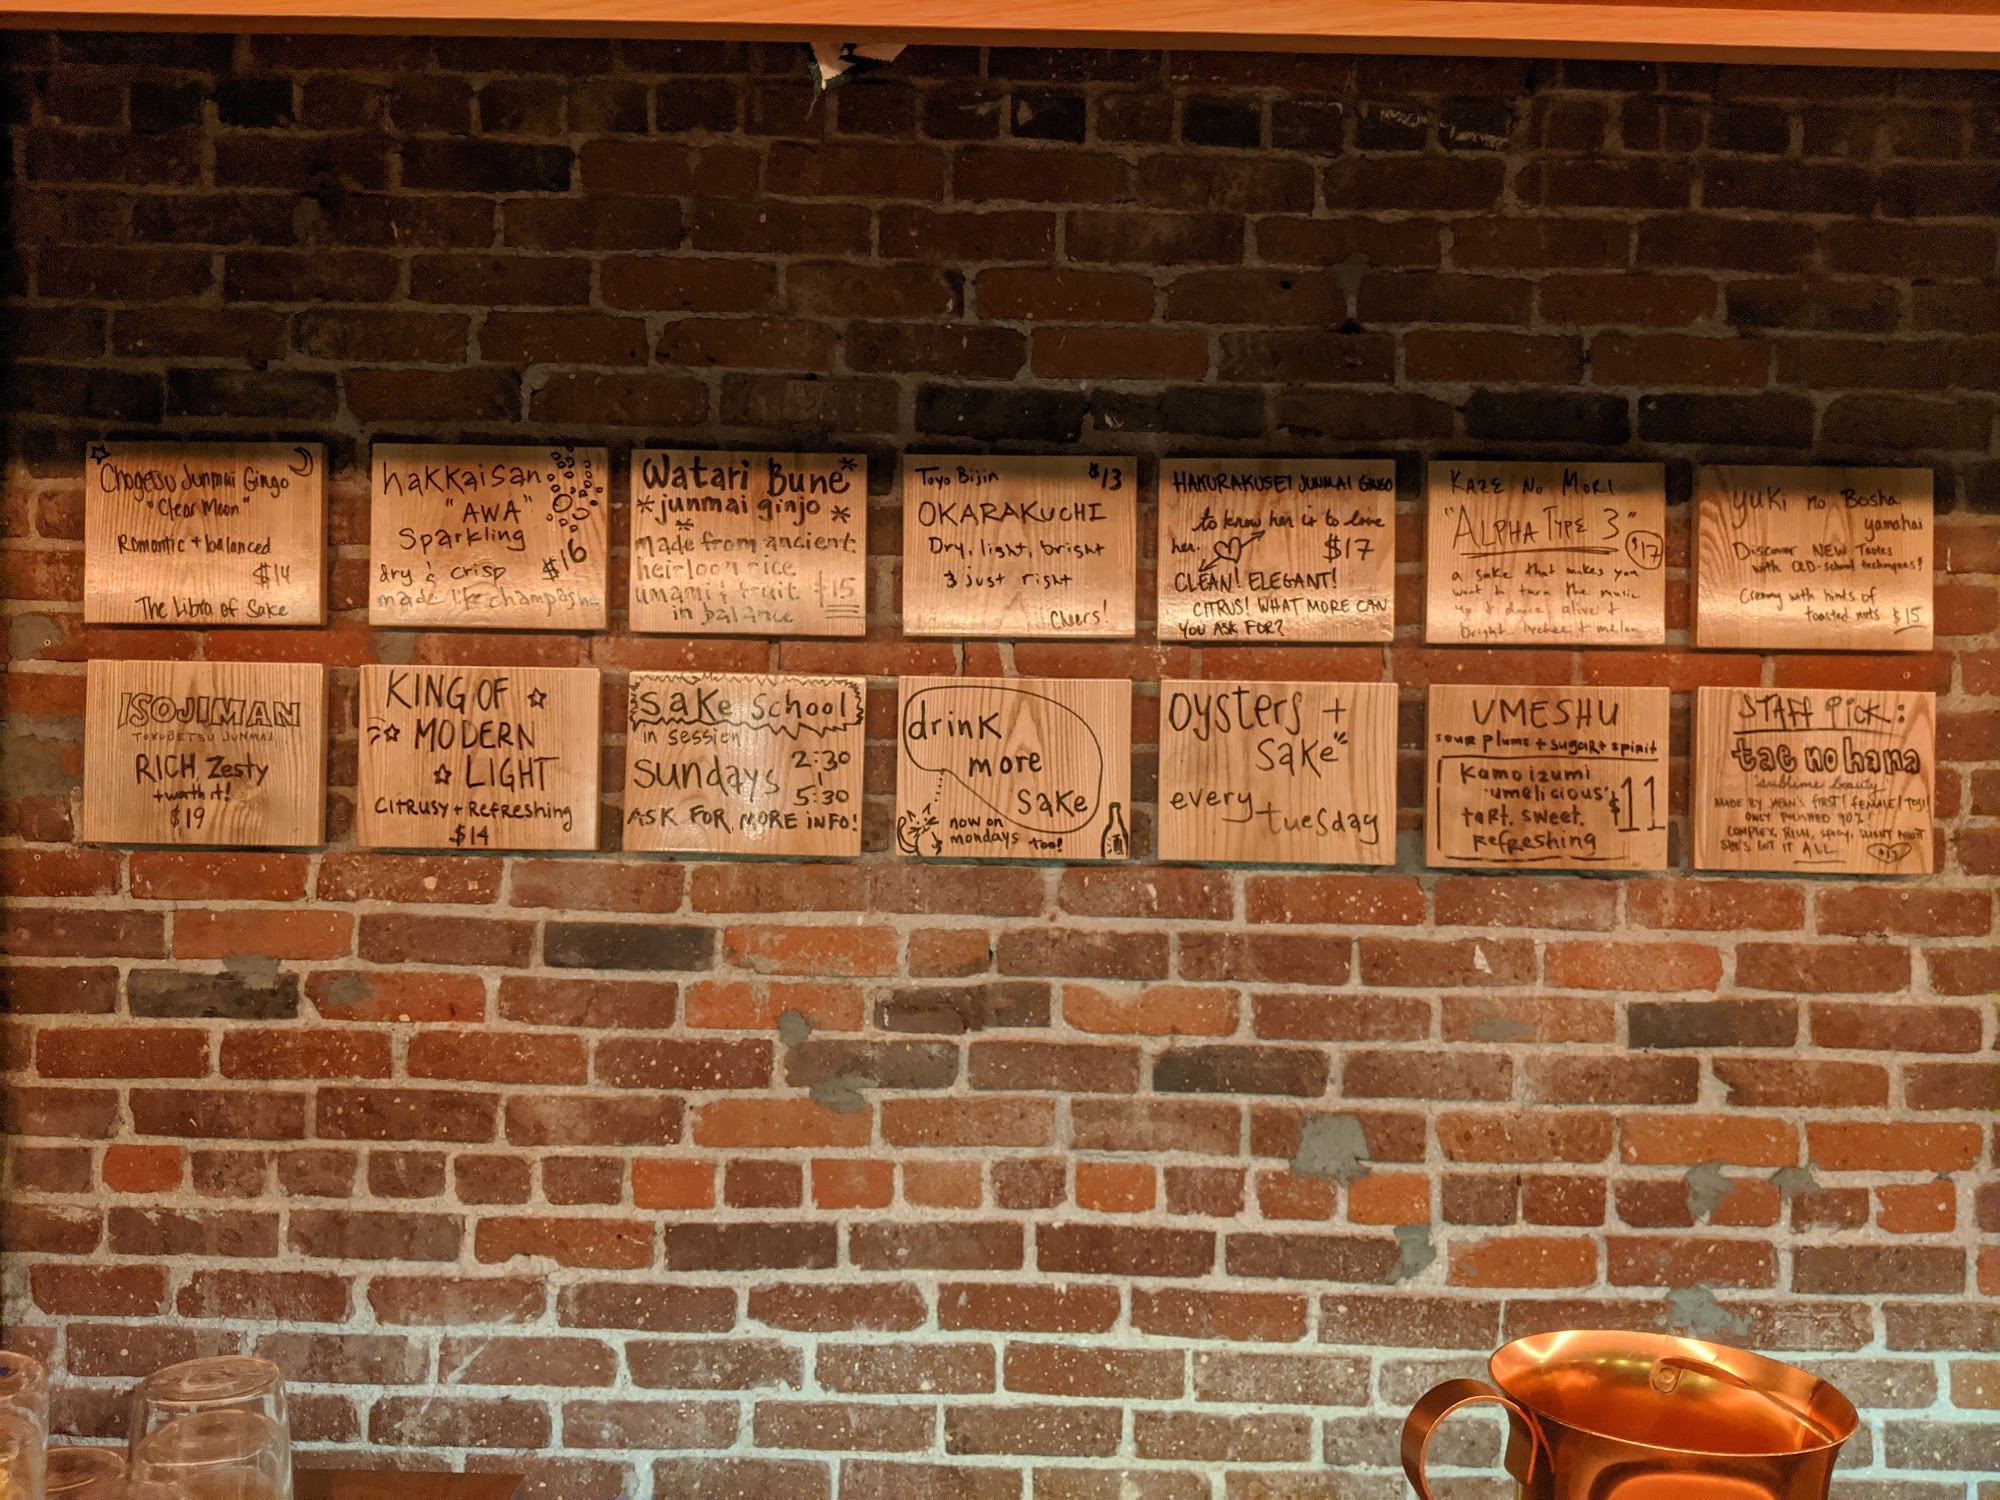 Chogetsu Junmai Ginjo
"Clear Moon"
Romantic + balanced
$14
The Libra of Sake
hakkaisan
"AWA"
Sparkling
$16
dry & crisp
made like champagne
Watari Bune
junmai ginjo
made from ancient
heirloom rice
umami & fruit $15
in balance
Toyo Bijin $13
OKARAKUCHI
Dry, light, bright
& just right
Cheers!
HAKURAKUSEI JUNMAI GINJO
to know her is to love
her. $17
CLEAN! ELEGANT!
CITRUS! WHAT MORE CAN
YOU ASK FOR?
KAZE NO MORI
"ALPHA TYPE 3"
$17
a sake that makes you
want to turn the music
up & dance. alive &
bright lychee + melon
Yuki no Bosha
yamahai
Discover NEW Tastes
with OLD-school techniques!
Creamy with hints of
toasted nuts $15
ISOJIMAN
TOKUBETSU JUNMAI
RICH, Zesty
+ worth it!
$19
KING OF
MODERN
LIGHT
CITRUSY + Refreshing
$14
Sake School
in session
Sundays 2:30
5:30
ASK FOR MORE INFO!
drink
more
sake
now on
mondays too!
Oysters +
Sake
every tuesday
UMESHU
sour plums + sugar + spirit
Kamoizumi
'umelicious'
$11
tart. sweet.
refreshing
STAFF PICK:
tae no hana
"sublime beauty"
MADE BY JAPAN'S FIRST FEMALE TOJI
ONLY POLISHED 90%!
COMPLEX, RICH, SPICY, SLIGHT FRUIT
SHE'S GOT IT ALL